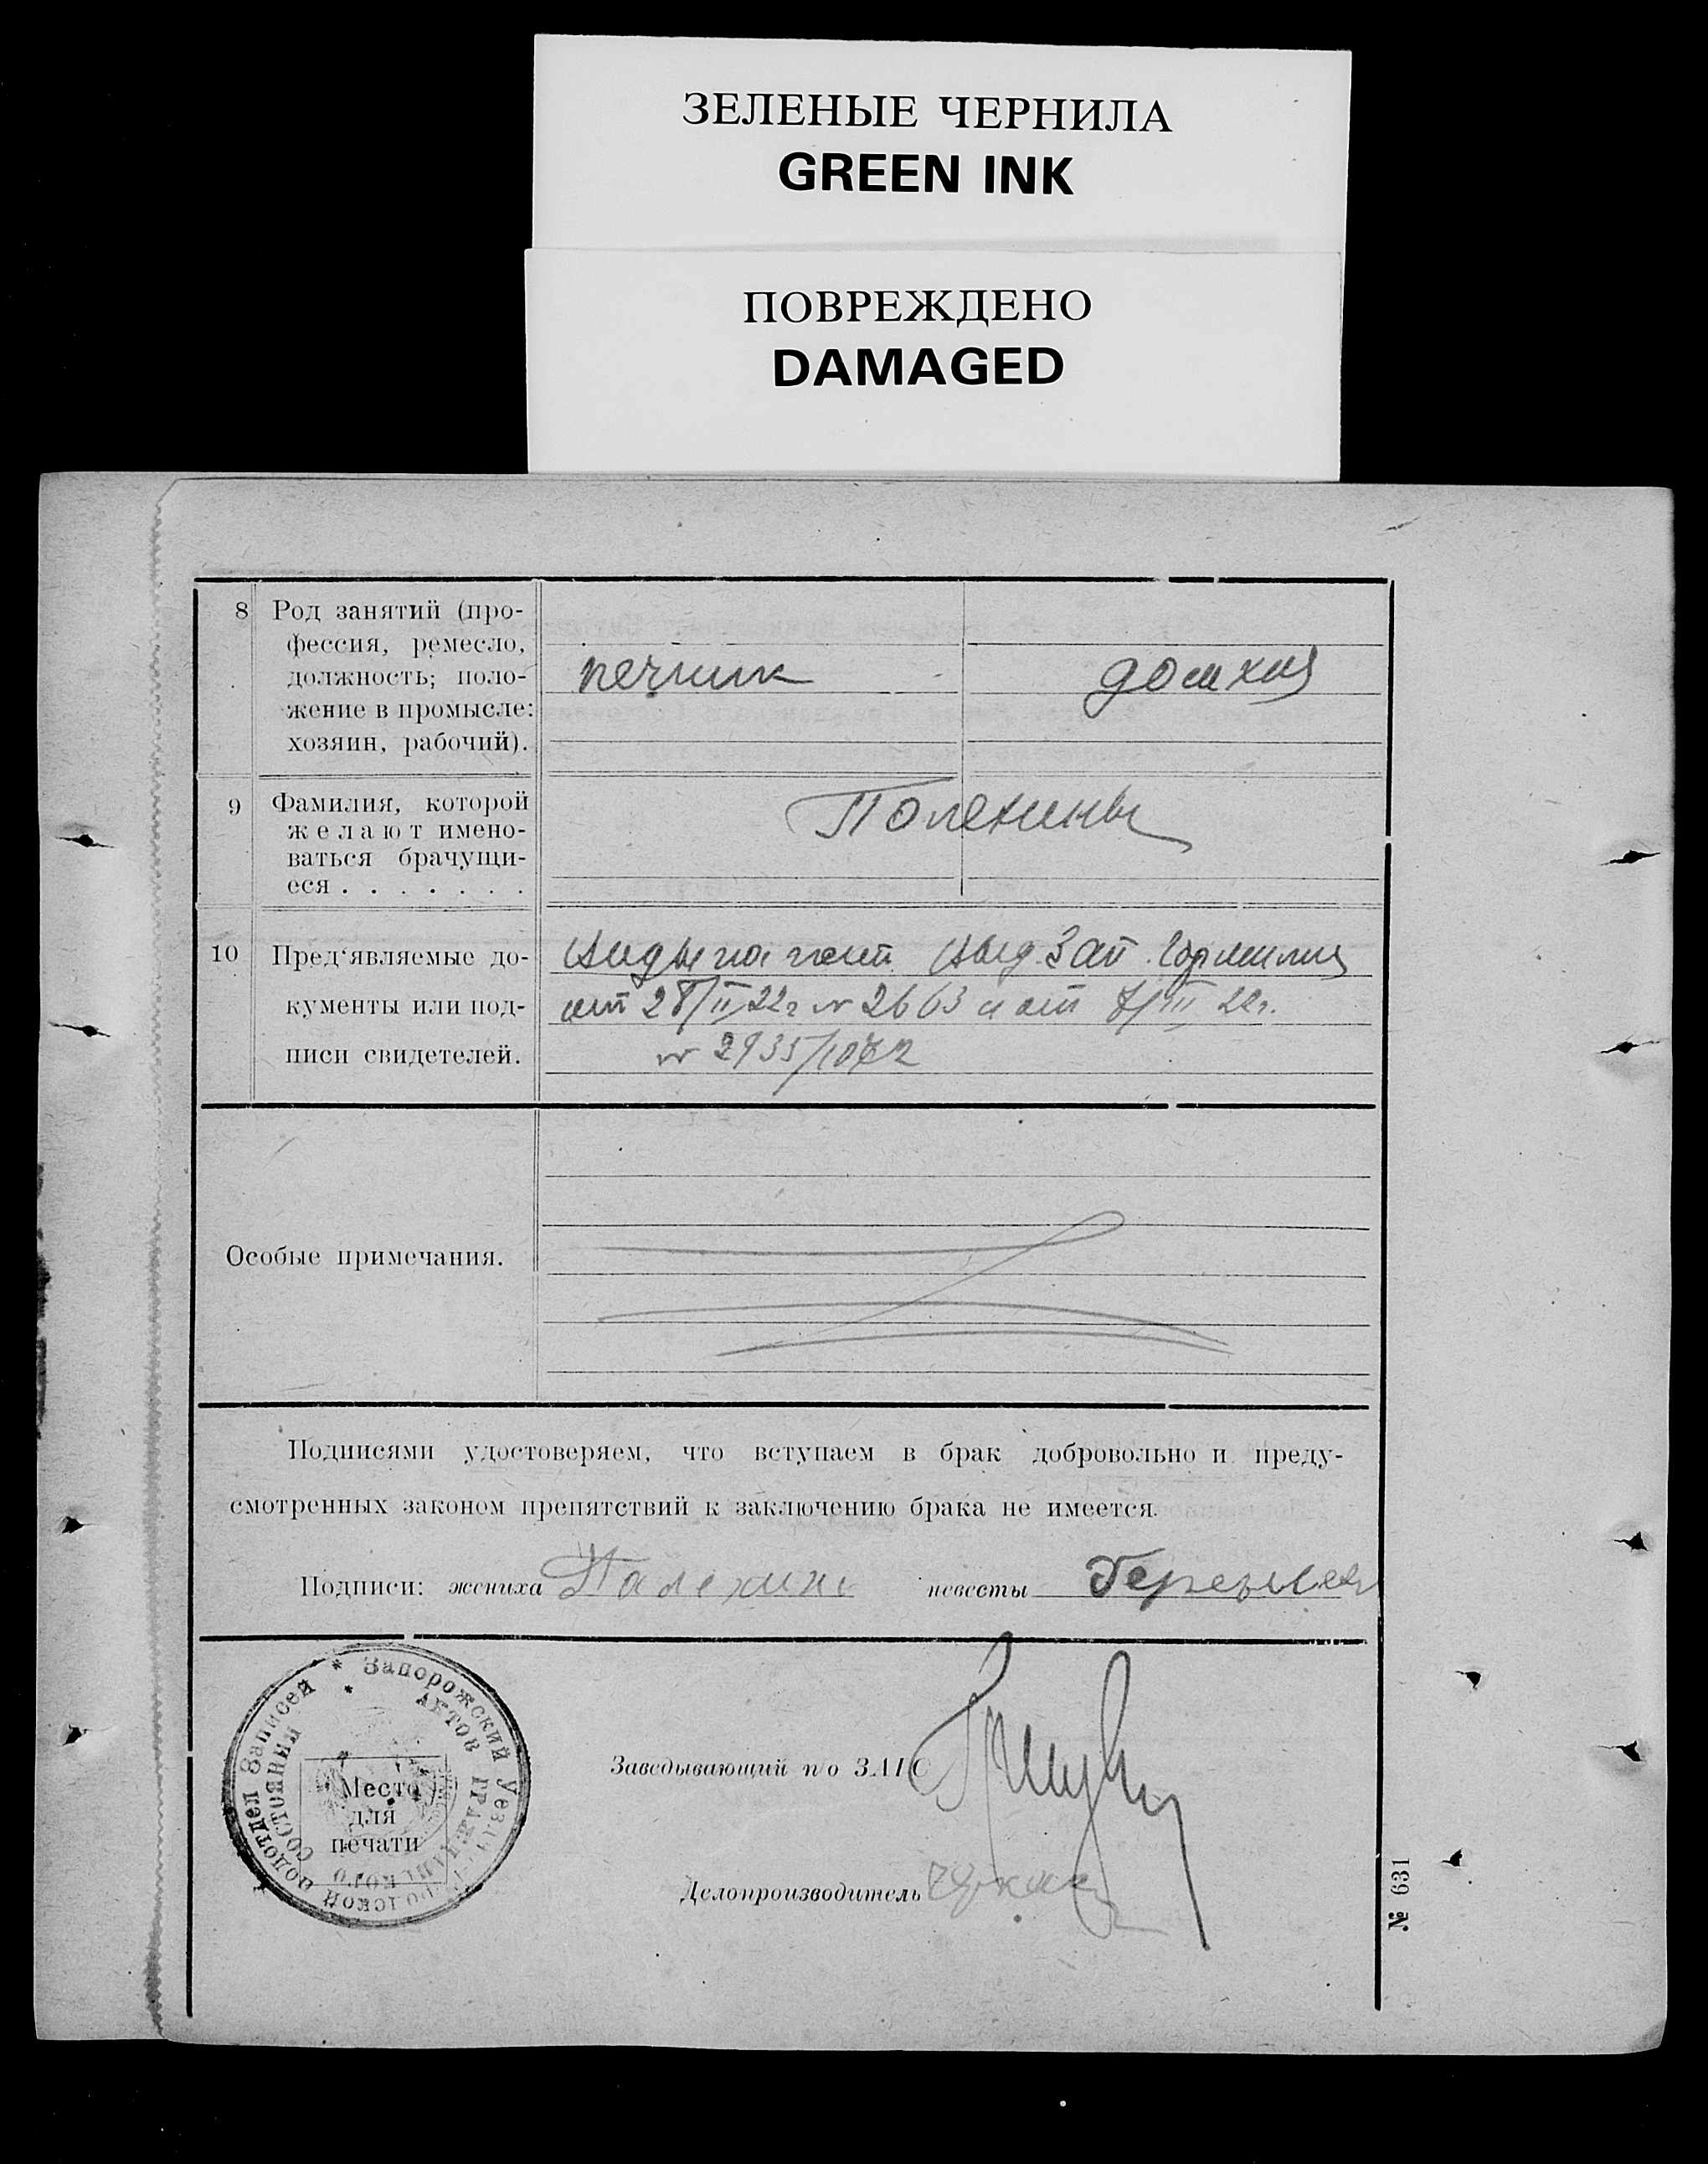 ЗЕЛЕНЫЕ ЧЕРНИЛА
GREEN INK
ПОВРЕЖДЕНО
DAMAGED
8 Род занятий (про-
фессия, ремесло,
должность; поло-
жение в промысле:
хозяин, рабочий).
печник
домхоз
9 Фамилия, которой
желают имено-
ваться брачущи-
еся . . . . . . .
Полехины
10 Пред‘являемые до-
кументы или под-
писи свидетелей.
от 28/II 22г № 2663 и от 7/III 22г.
№ 2935/1072
Особые примечания.
Подписями удостоверяем, что вступаем в брак добровольно и преду-
смотренных законом препятствий к заключению брака не имеется.
Подписи: жениха Полехин невесты
Заведывающий п/о ЗАГС
Делопроизводитель
* Запорожский Уезд подотдел Записей *
АКТОВ ГРАЖДАНСКОГО СОСТОЯНИЯ
Место
для
печати
№ 631